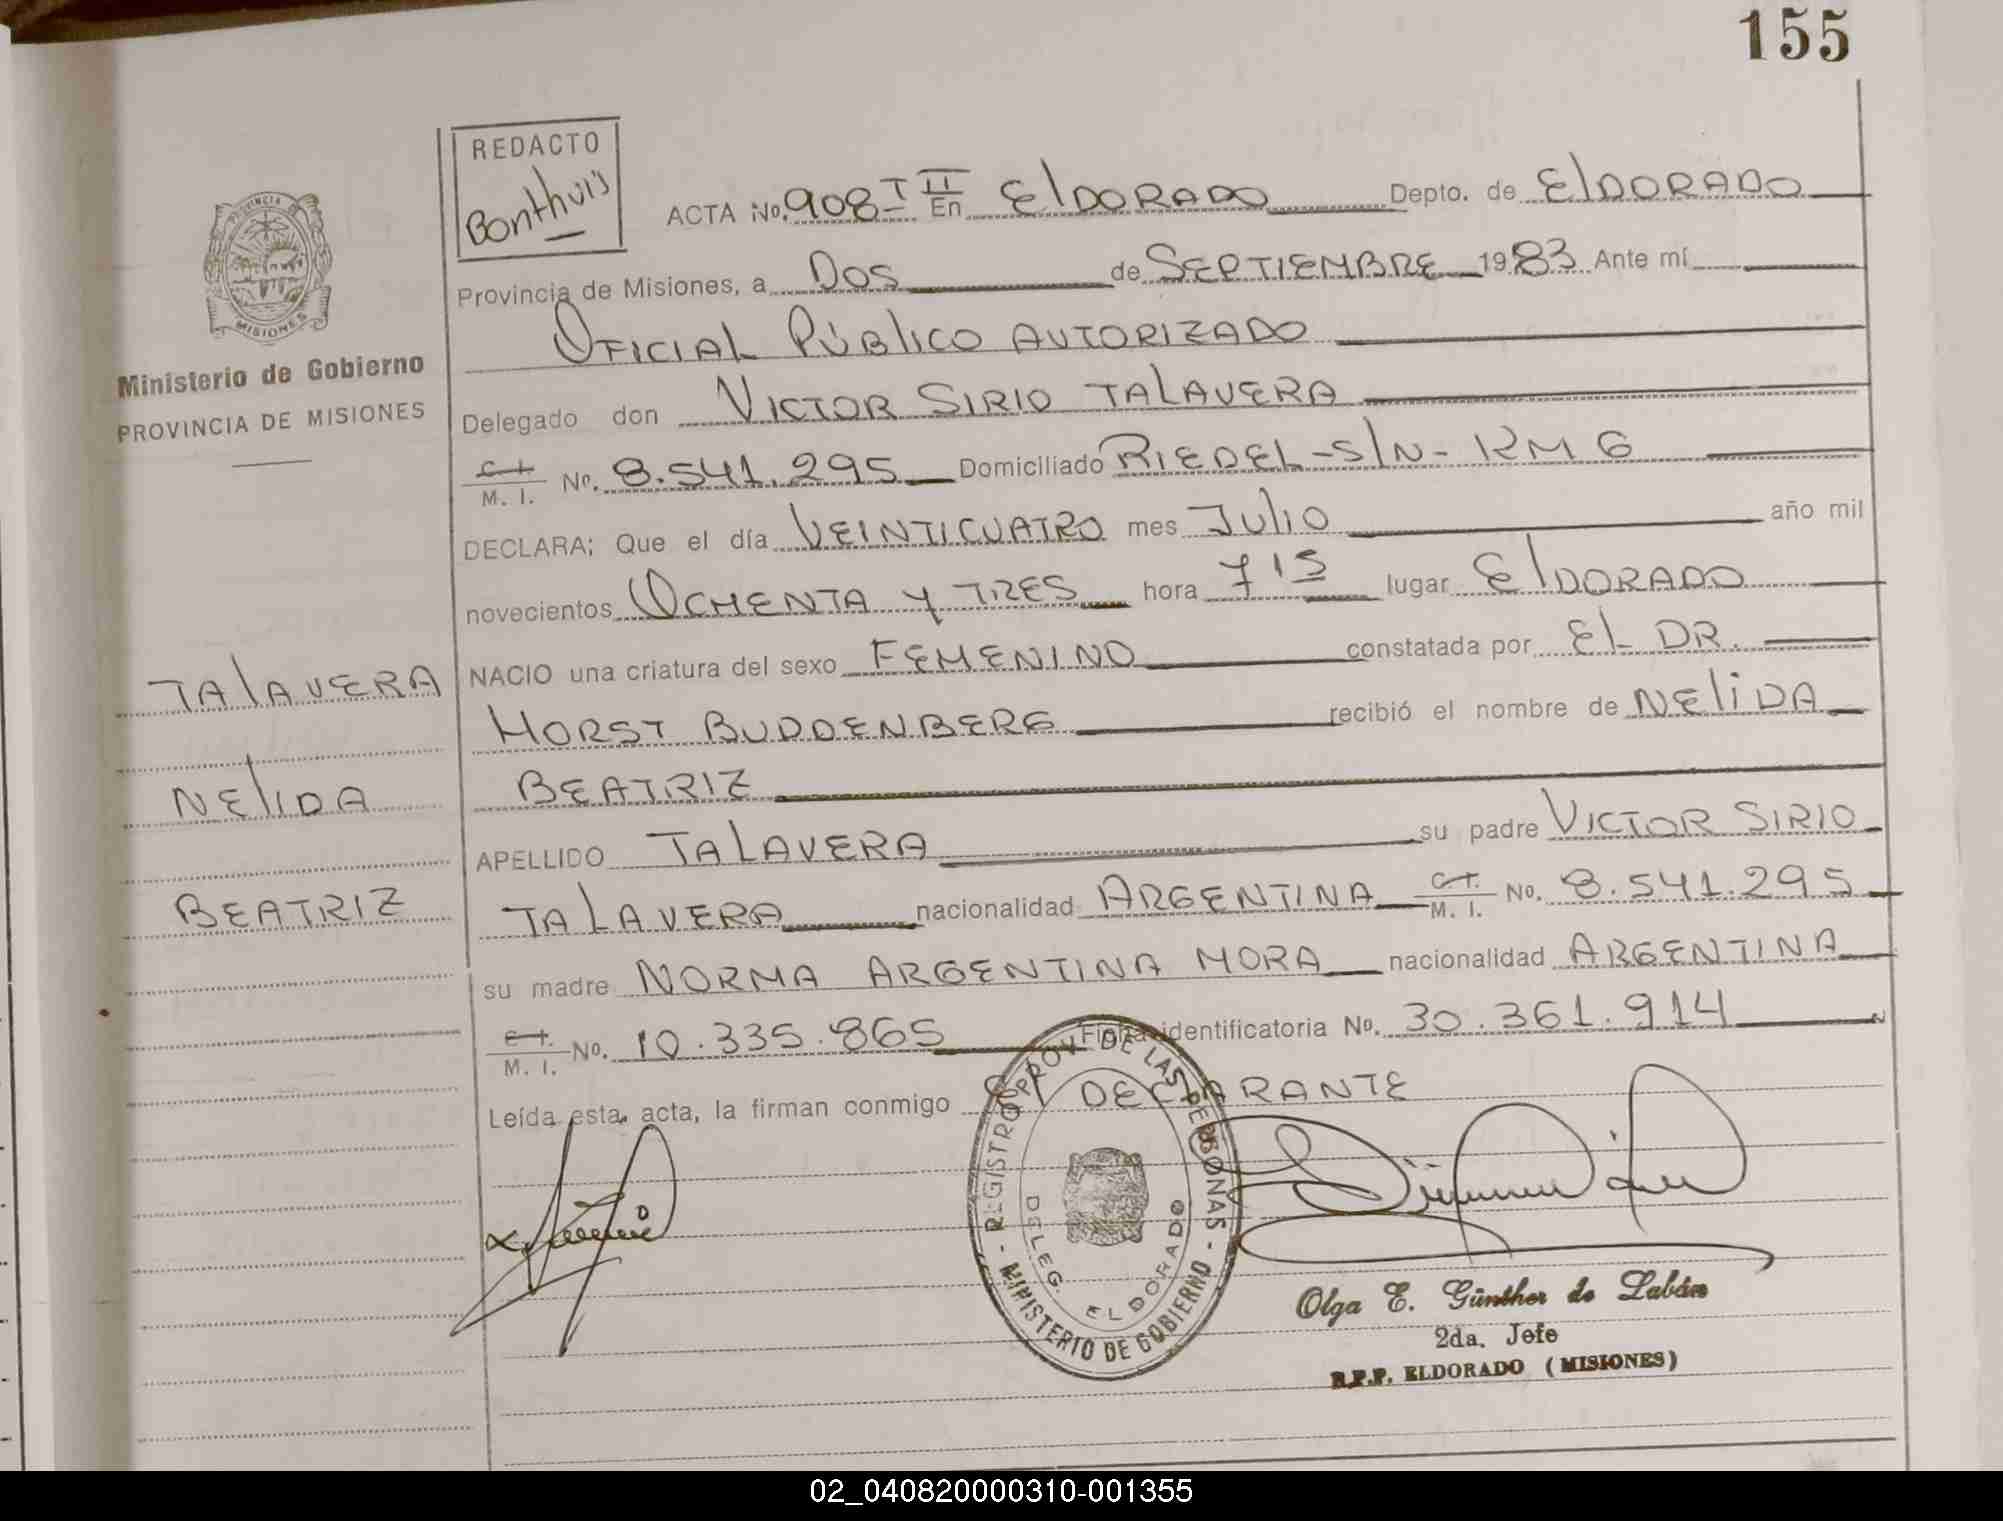 155
REDACTO
Bonthuis
ACTA No. 908 T II En ElDORADO Depto. de ElDORADO
Provincia de Misiones, a DOS de SEPTIEMBRE 1983 Ante mí
OFICIAL PÚBlICO AUTORIZADO
Delegado don VICTOR SIRIO TALAVERA
C. I.
M. I. No. 8.541.295 Domiciliado RIEDEL-S/N-KM 6
DECLARA; Que el día VEINTICUATRO mes JULIO año mil
novecientos OCHENTA Y TRES hora 7 15 lugar ElDORADO
NACIO una criatura del sexo FEMENINO constatada por EL DR.
HORST BUDDENBERG recibió el nombre de NELIDA
BEATRIZ
APELLIDO TALAVERA su padre VICTOR SIRIO
TALAVERA nacionalidad ARGENTINA C. I. M. I. No. 8.541.295
su madre NORMA ARGENTINA MORA nacionalidad ARGENTINA
C. I.
M. I. No. 10.335.865 Ficha identificatoria No. 30.361.914
Leída esta acta, la firman conmigo El DECLARANTE
PROVINCIA DE
MISIONES
Ministerio de Gobierno
PROVINCIA DE MISIONES
TALAVERA
NELIDA
BEATRIZ
REGISTRO PROV. DE LAS PERSONAS
MINISTERIO DE GOBIERNO
DELEG. ELDORADO
Olga E. Günther de Labán
2da. Jefe
R.P.P. ELDORADO (MISIONES)
02_040820000310-001355